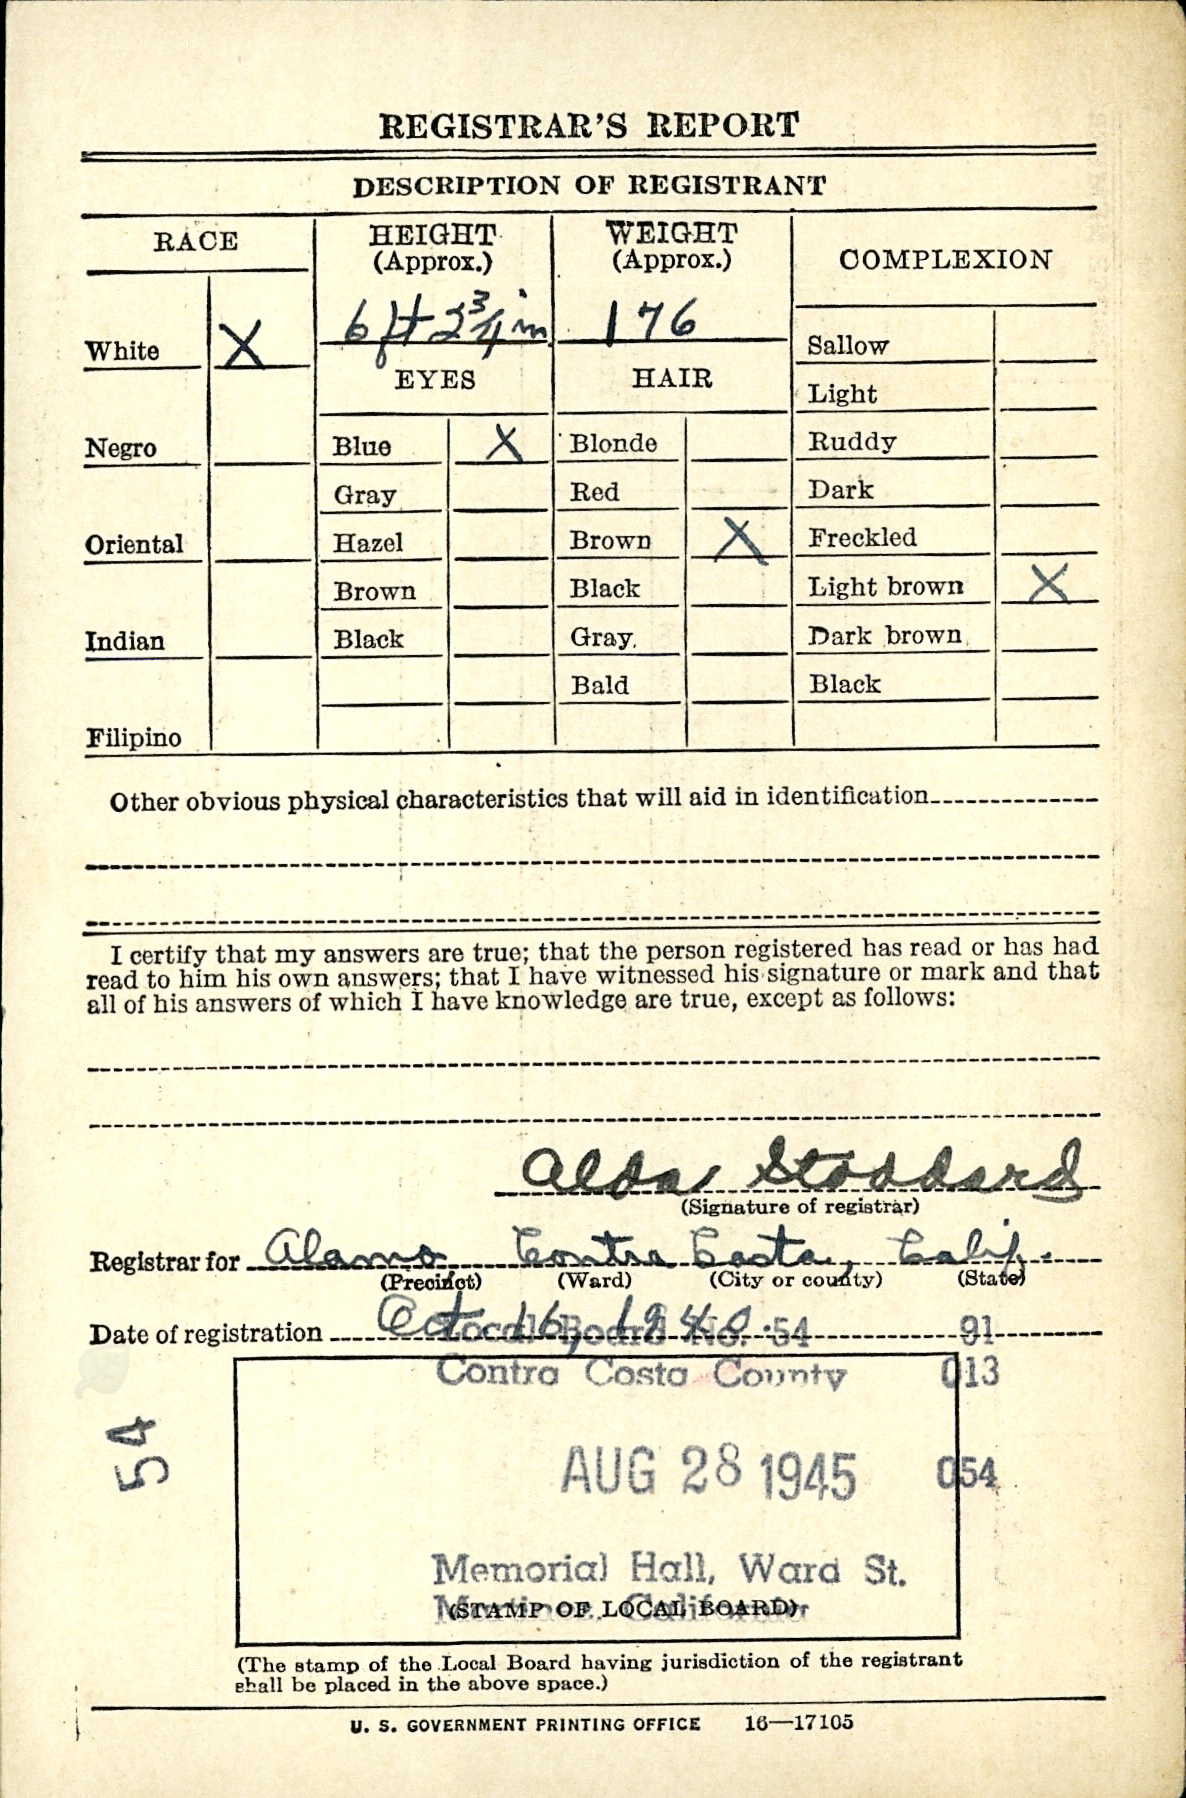 REGISTRAR'S REPORT
DESCRIPTION OF REGISTRANT
RACE
HEIGHT
(Approx.)
WEIGHT
(Approx.)
COMPLEXION
6 ft 2 3/4 in
176
White X
EYES
HAIR
Sallow
Light
Negro
Blue X
Blonde
Ruddy
Gray
Red
Dark
Oriental
Hazel
Brown X
Freckled
Brown
Black
Light brown X
Indian
Black
Gray
Dark brown
Bald
Black
Filipino
Other obvious physical characteristics that will aid in identification
I certify that my answers are true; that the person registered has read or has had
read to him his own answers; that I have witnessed his signature or mark and that
all of his answers of which I have knowledge are true, except as follows:
Alda Stoddard
(Signature of registrar)
Registrar for Alamo Contra Costa, Calif.
(Precinct) (Ward) (City or county) (State)
Date of registration Oct. 16, 1940.
Local Board No. 54 91
Contra Costa County 013
54
AUG 28 1945 054
Memorial Hall, Ward St.
Martinez, California
(STAMP OF LOCAL BOARD)
(The stamp of the Local Board having jurisdiction of the registrant
shall be placed in the above space.)
U. S. GOVERNMENT PRINTING OFFICE 16—17105